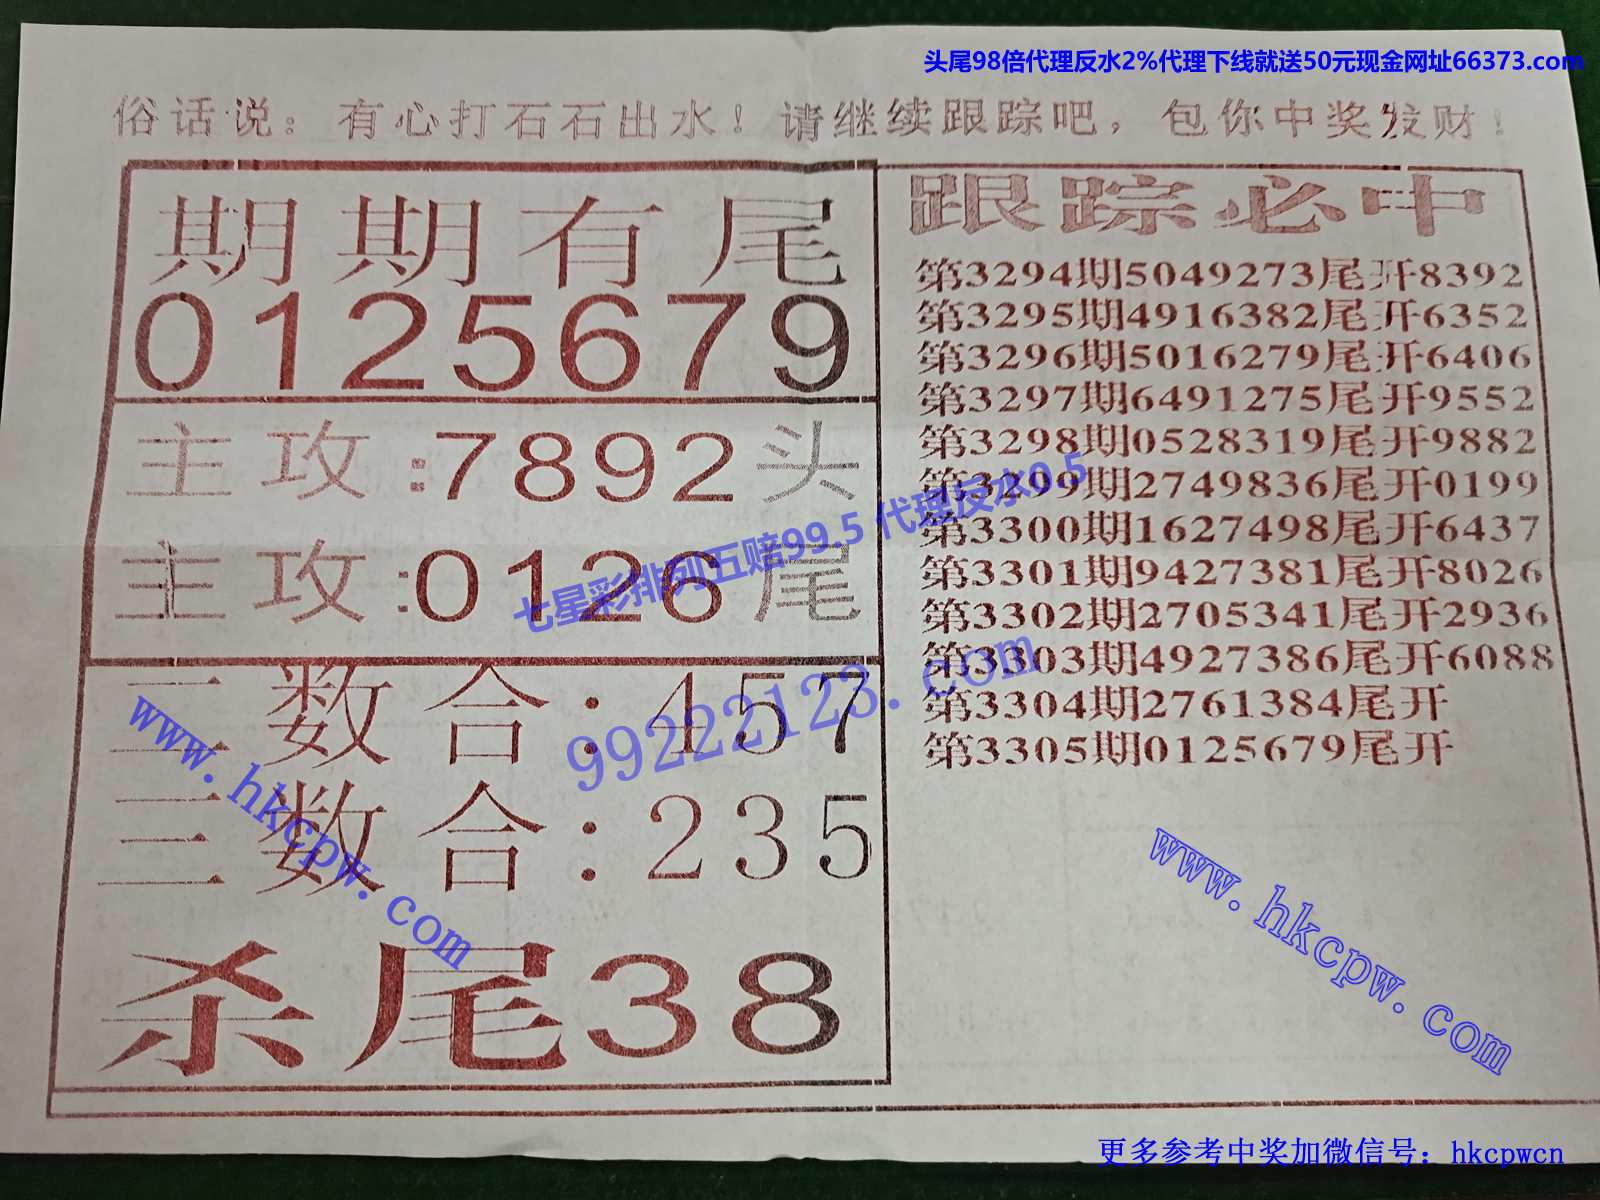 头尾98倍代理反水2%代理下线就送50元现金网址66373.com
俗话说：有心打石石出水！请继续跟踪吧，包你中奖发财！
期期有尾
0125679
主攻:7892头
主攻:0126尾
二数合:457
三数合:235
杀尾38
跟踪必中
第3294期5049273尾开8392
第3295期4916382尾开6352
第3296期5016279尾开6406
第3297期6491275尾开9552
第3298期0528319尾开9882
第3299期2749836尾开0199
第3300期1627498尾开6437
第3301期9427381尾开8026
第3302期2705341尾开2936
第3303期4927386尾开6088
第3304期2761384尾开
第3305期0125679尾开
七星彩排列五赔99.5 代理反水0.5
99222123.com
www.hkcpw.com
www.hkcpw.com
更多参考中奖加微信号：hkcpwcn